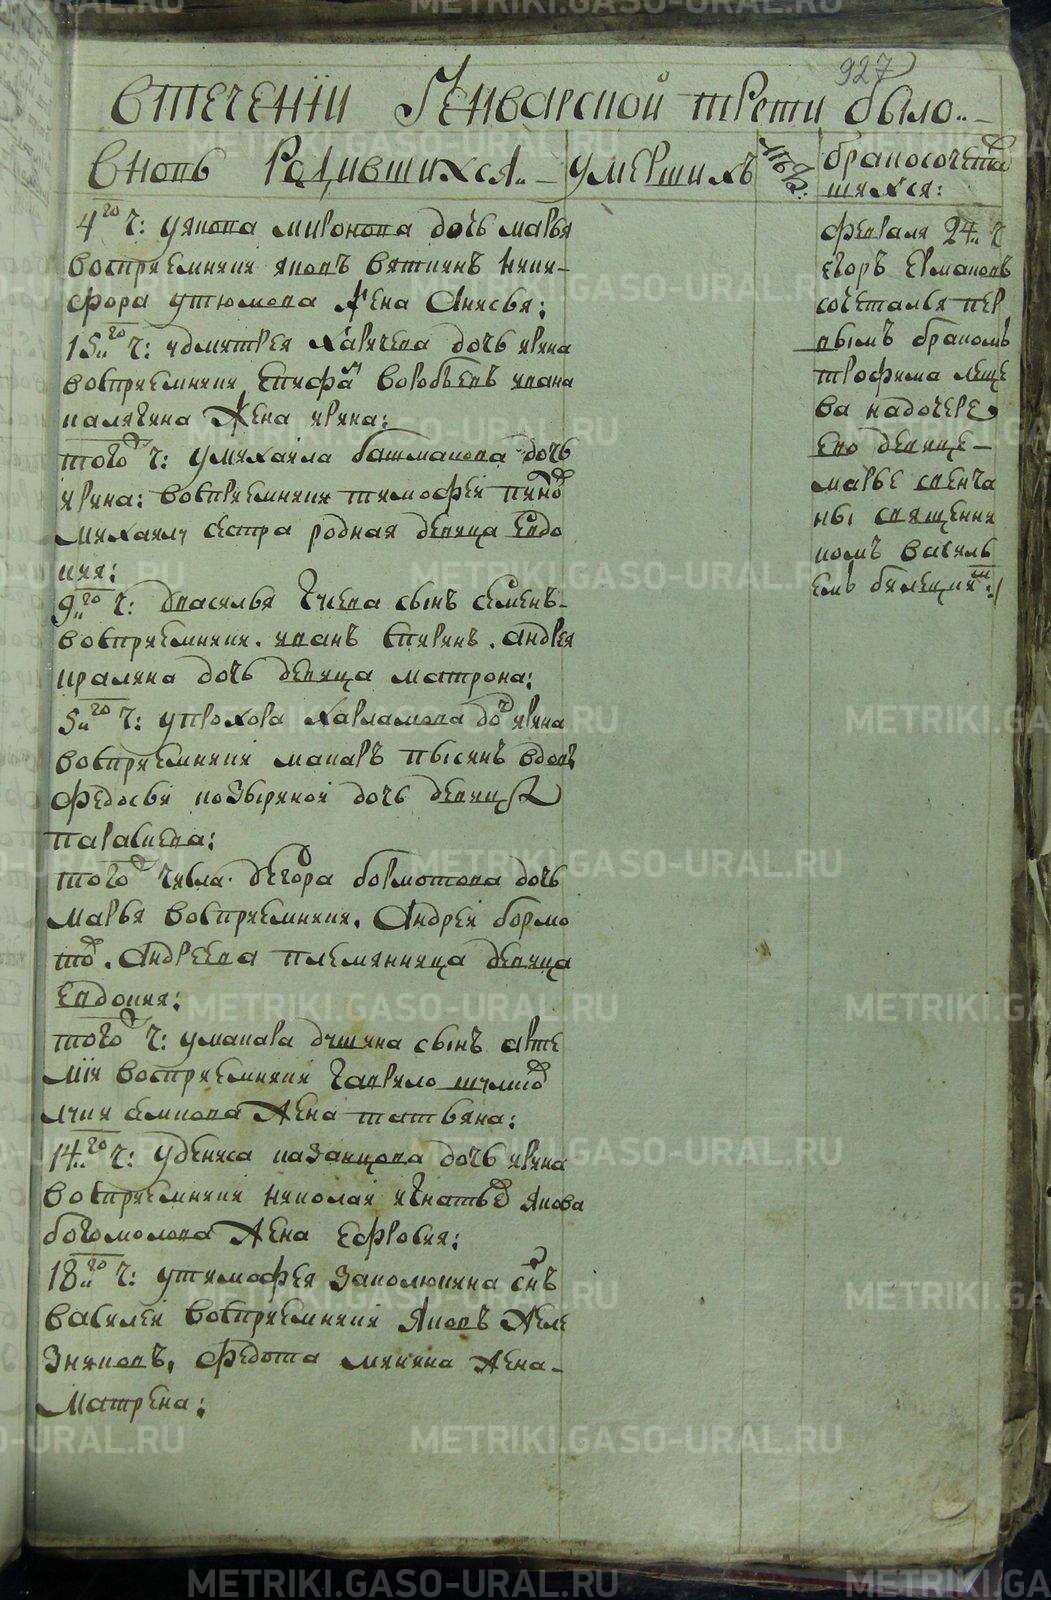 927
Втечении Генварской трети было..
Вновь Родившихся..
умершихъ
лѣта:
бракосочета
шихся:
4го ч: уякова миронова дочь марья
восприемники яковъ вяткинъ ники-
фора утюмова жена Анисья:
15..го ч: удмитрея харичева дочь ирина
восприемники Епифан воробьевъ ивана
палкина жена ирина:
того ч: умихаила башмакова дочь
ирина: восприемники тимофей
михаилу сестра родная девица Евдо
кия:
9..го ч: Двасилья Гусева сынъ семенъ-
восприемники. иванъ Спиринъ. андрея
кралина дочь девица матрона:
5..го ч: упрохора харламова доч ирина
восприемники макаръ писинъ вдовъ
федосьи позыриной дочь девица
параскева:
того числа. Дегора бормотова дочь
марья восприемники. Андрей бормо
то. Андреева племянница девица
Евдокия:
того ч: умакара душина сынъ арте
мїи восприемники Гаврило
луки семкова жена татьяна:
14..го ч: уДениса казанцова дочь ирина
восприемники николай игнатье якова
богомолова жена Ефросия:
18..го ч: утимофея заколюкина снъ
василеи восприемники Яковъ желе
зняковъ, федота минина жена-
матрена:
февраля 24.. ч
егоръ Ермаковъ
сочетался пер
вымъ бракомъ
трофима леще
ва надочере
ево девице-
марье свенча
ны священни
комъ василь
емъ билецки:
METRIKI.GASO-URAL.RU